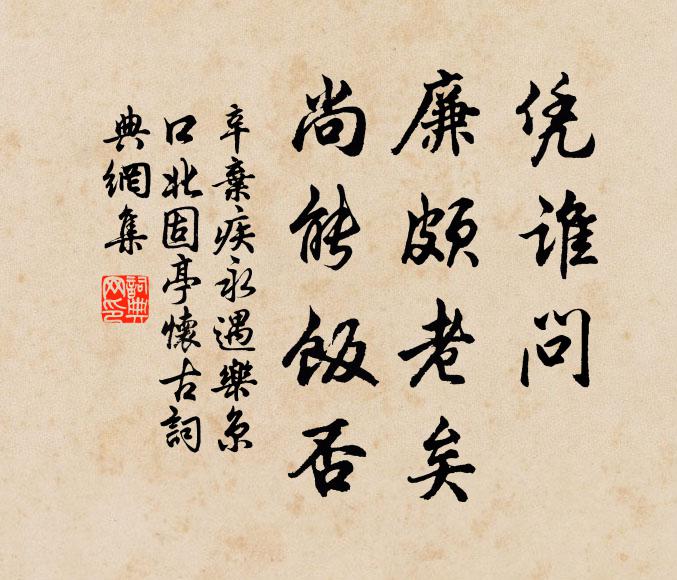 凭誰问
廉颇老矣
尚能饭否
辛棄疾永遇樂京
口北固亭懷古詞
典網集
詞典
网印